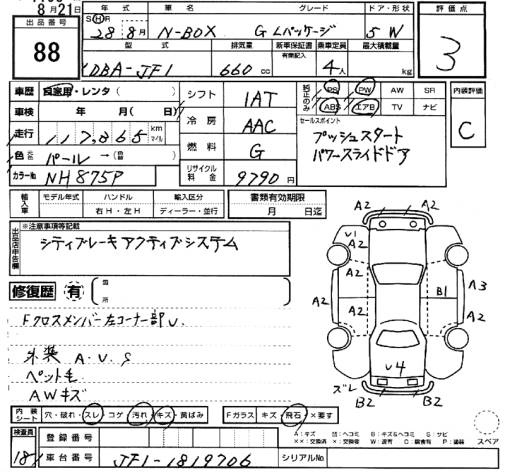 8月21日
出品番号
88
年式 車名 グレード ドア・形状
SHR 28年 8月 N-BOX G Lパッケージ 5 W
型式 排気量 新車保証書 乗車定員 最大積載量
有無記入
DBA-JF1 660cc 4人 kg
評価点
3
車歴 自家用・レンタ( )
車検 年 月( 日)
走行 117,865 km マイル
色 元色 パール→(替 )
カラーNo NH875P
シフト 1AT
冷房 AAC
燃料 G
リサイクル料金 9790円
純正のみ
PS PW AW SR
ABS エアB TV ナビ
セールスポイント
プッシュスタート
パワースライドドア
内装評価
C
輸入車 モデル年式 ハンドル 輸入区分
年 右H・左H ディーラー・並行
書類有効期限
月 日迄
出品店申告欄
※注意事項等記載
シティブレーキアクティブシステム
修復歴 有 箇所
Fクロスメンバー左コーナー部U.
外装 A.U.S
ペット毛
AWキズ
A2 A2
V1
A2 A2 A2 A3
B1
A2 A2
V4
ズレ
B2 B2
内装シート 穴・破れ・スレ コゲ 汚れ・キズ・黄ばみ
Fガラス キズ・飛石・×要す
検査員
181
登録番号
車台番号 JF1-1819706
シリアルNo
スペア